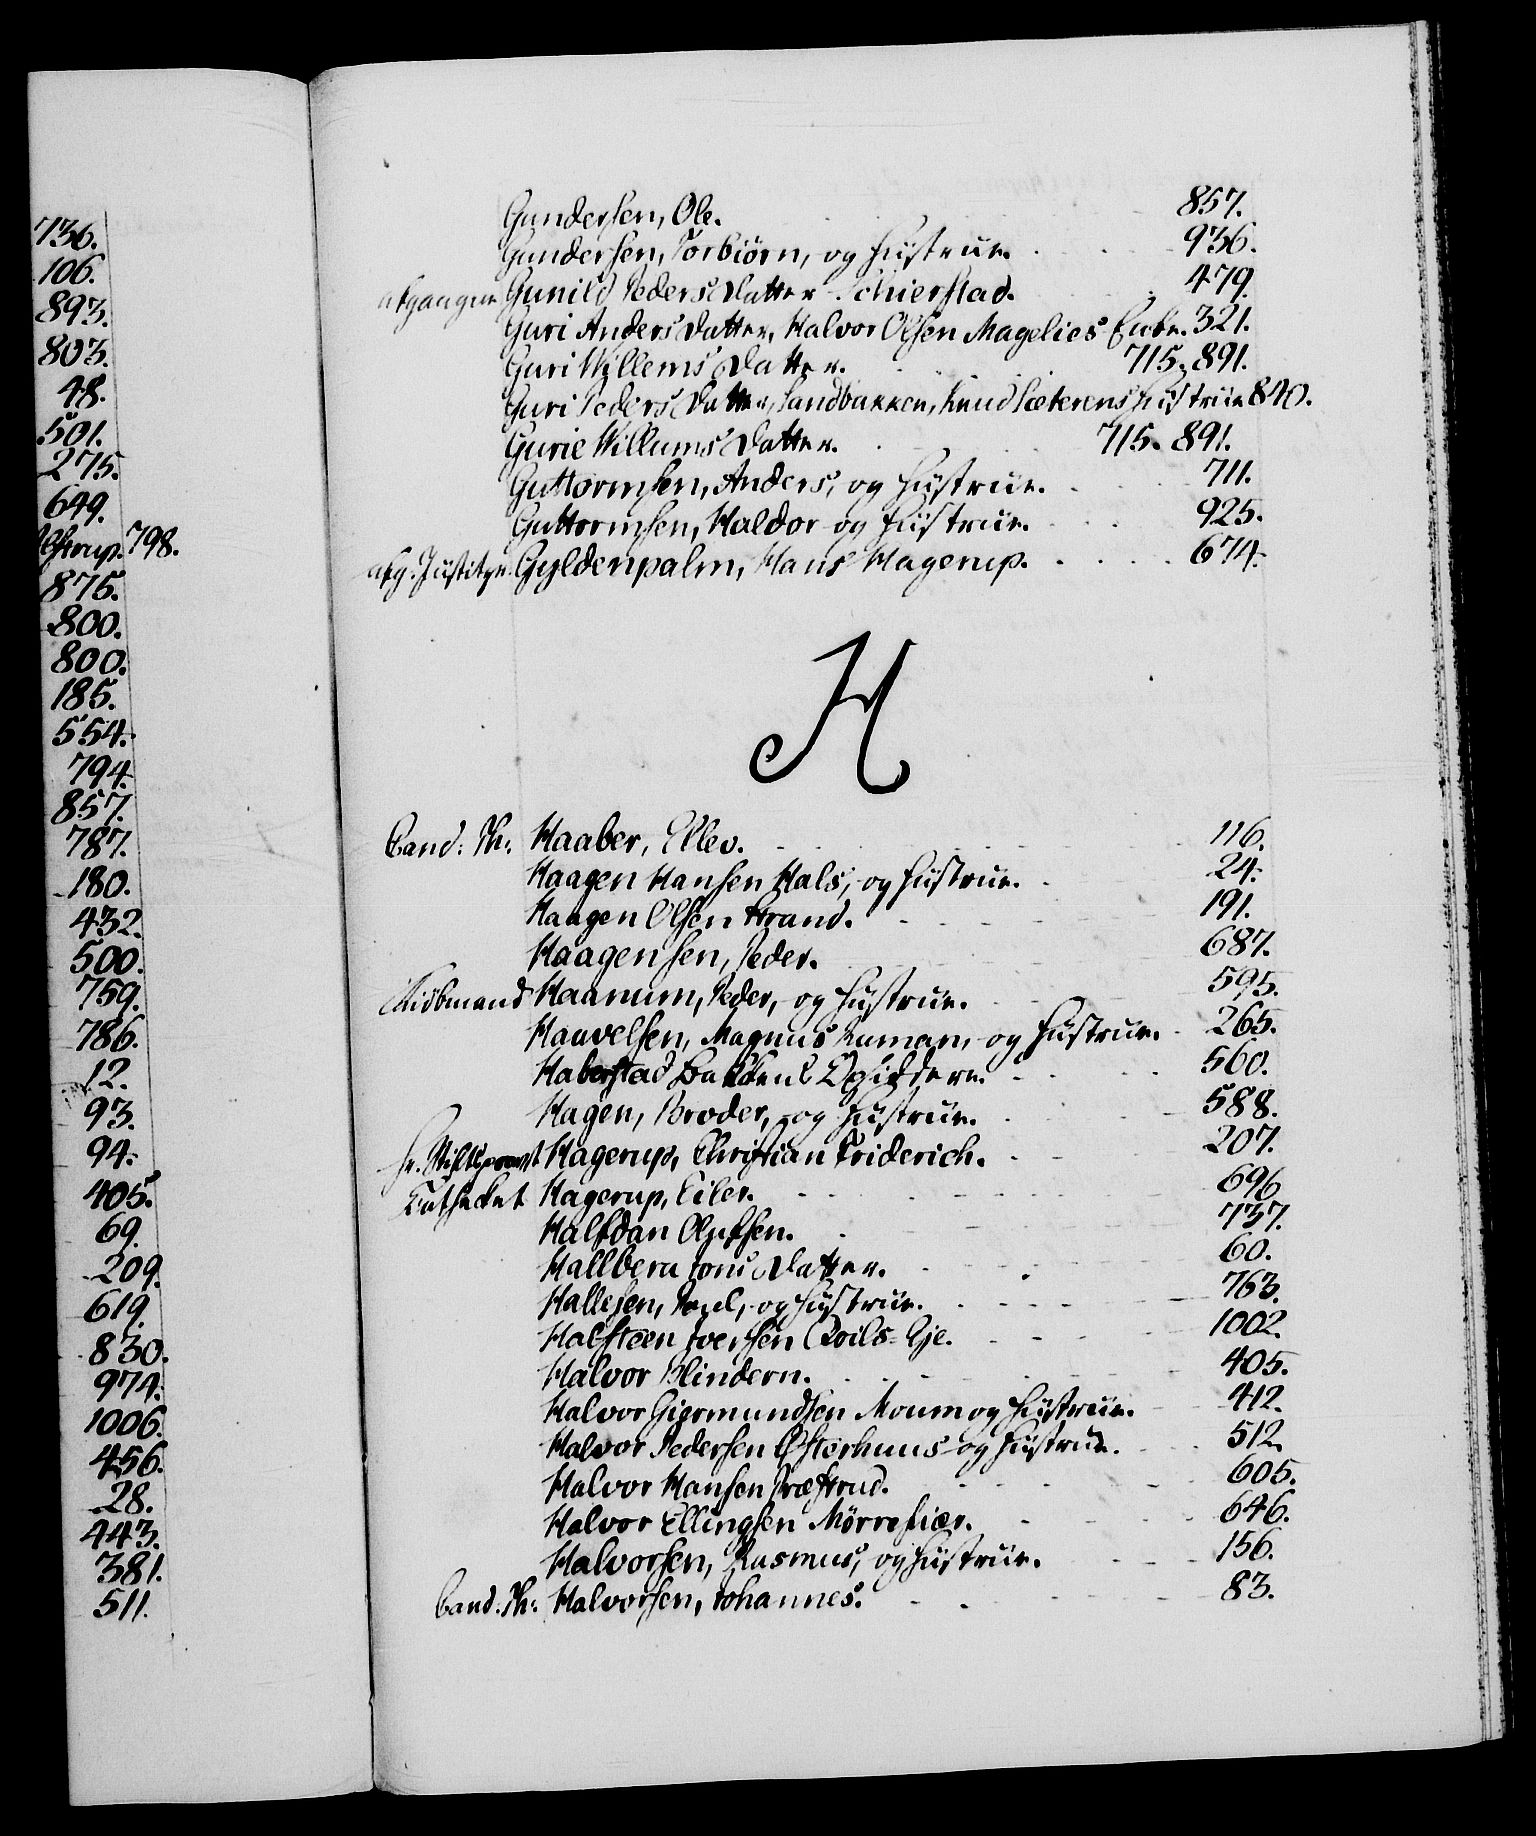 736.
106.
893.
803.
48.
501.
275.
649.
798.
875.
800.
800.
185.
554.
794.
857.
787.
180.
432.
500.
759.
786.
12.
93.
94.
405.
69.
209.
619.
830.
974.
1006.
456.
28.
443.
381.
511.
Gundersen, Ole. 857.
Gundersen, Torbiörn, og Hustrue. 936.
afgangne Gunild Peders Datter Schierstad. 479.
Guri Anders Datter, Halvor Olsen Magelies Enke. 321.
Guri Willems Datter. 715. 891.
Guri Peders Datter, Sandbakken, Knud Sæterens Hustrue 840.
Gurie Willums Datter. 715. 891.
Guttormsen, Anders, og Hustrue. 711.
Guttormsen, Haldor og Hustrue. 925.
afg. Justitzr. Gyldenpalm, Hans Hagerup. 674.
H
Cand: Th: Haaber, Ellev. 116.
Haagen Hansen Hals, og Hustrue. 24.
Haagen Olsen Strand. 191.
Haagensen, Peder. 687.
Kiöbmand Haanum, Peder, og Hustrue. 595.
Haavelsen, Magnus Ruman, og Hustrue. 265.
Haberstad Bakkens Opsiddere. 560.
Hagen, Broder, og Hustrue. 588.
Hr. Stiftsprovst Hagerup, Christian Friderich. 207.
Hagerup, Eiler. 696
Halfdan Olufsen. 737.
Hallbera Jons Datter. 60.
Hallesen, Poul, og Hustrue. 763.
Halsteen Iversen Qvils-Eje. 1002.
Halvor Blindern. 405.
Halvor Giermundsen Moum og Hustrue. 412.
Halvor Pedersen Østerhuus og Hustrue. 512.
Halvor Hansen Præstrud. 605.
Halvor Ellingsen Mørrefiær. 646.
Halvorsen, Rasmus, og Hustrue. 156.
Cand: Th: Halvorsen, Johannes. 83.